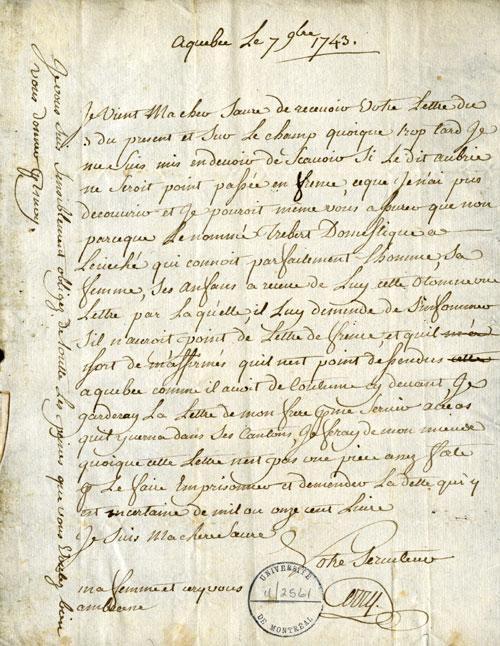 aquebec Le 7 9bre 1743.
Je Vient Ma cher Saure de recevoir Votre Lettre du
3 du present et Sur Le champ quoique trop tard Je
me suis mis endevoir de Scavoir Si Le dit aubrie
ne Seroit point passée en frence, ceque Je nai pus
decouvrir et Je pouroit meme vous assurer que non
parceque Le nommé Trebert Domestique a
qui connoit parfaitement Lhomme, Sa
femme, Ses Anfans a receue de Luy cette otomne une
Lettre par Laquelle, il Luy demende de Sinformer
Sil nauroit point de Lettre de frence et quil
fort de quil nest point dessendus
aquebec comme il avoit de coutume cy devant, Je
garderay La Lettre de mon frere pme Servir
quil dans Ses Cantons, Je feray de mon mieux
quoique cette Lettre nest pas une piece assez forte
p Le faire Emprisonner et demender La dette qui
est incertaine de mil ou onze cent Livre
Je Suis Ma chere Saure
Votre Serviteur
ma femme et cery vous
ambrasse
UNIVERSITÉ
U/2561
DE MONTRÉAL
Je vous Suis Sensiblement obligez de toutte Les peines que vous Voulez bien
vous donner p moy.